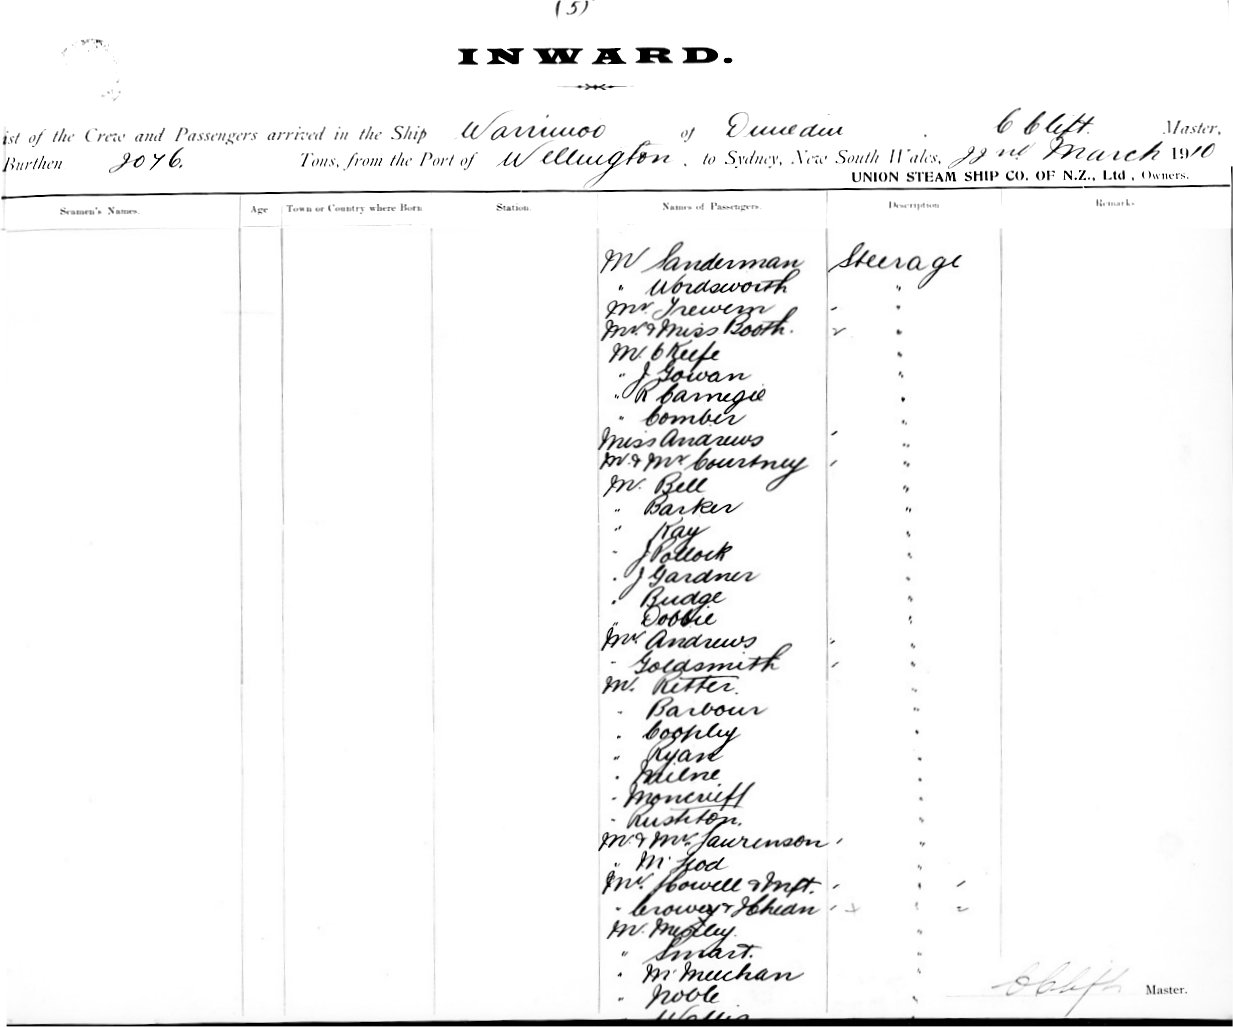 (5)
INWARD.
ist of the Crew and Passengers arrived in the Ship Warrimoo of Dunedin . C Clift. Master,
Burthen 2076. Tons, from the Port of Wellington, to Sydney, New South Wales, 22nd March 1910
UNION STEAM SHIP CO. OF N.Z., Ltd, Owners.
Seamen's Names. Age Town or Country where Born Station. Names of Passengers. Description Remarks
Mr Sanderman Steerage
" Wordsworth "
Mrs Trewern "
Mr & Miss Booth. "
Mr. O'Keefe "
" J Gowan "
" R Carnegie "
" Comber "
Miss Andrews "
Mr & Mrs Courtney "
Mr. Bell "
" Barker "
" Kay "
" J Pollock "
" J Gardner "
" Budge "
" Dobbie "
Mrs. Andrews "
" Goldsmith "
Mr. Ritter. "
" Barbour "
" Coghley "
" Ryan "
" Milne "
" Moncrieff "
" Rushton. "
Mr & Mrs Laurenson "
" McLeod "
Mrs. Howell & Inft. "
" "
Mr. "
" Smart. "
" McMeechan "
" Noble "
" Wallis
C Clift Master.